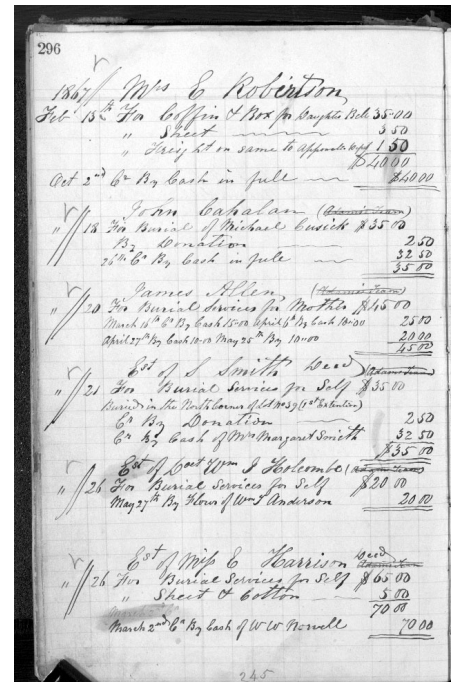 296
1867 Mrs E Robertson
Feb 15th For Coffin & Box for Daughter Bell 35.00
" Sheet 3 50
" Freight on same to 1 50
$40 00
Oct 2nd Cr By Cash in full $40 00
John Cahalan (Adams Team)
" 18 For Burial of Michael Cusick $35 00
By Donation 2 50
26th Cr By Cash in full 32 50
35 00
James Allen (Adams Team)
" 20 For Burial Services for Mother $45 00
March 16th Cr By Cash 15.00 April 6th By Cash 10.00 25 00
April 27th By Cash 10.00 May 25th By 10.00 20 00
45 00
Est of S Smith Deed (Adams Team)
" 21 For Burial Services for Self $35 00
Buried in the North Corner of Lot No 59 (1st Extention)
Cr By Donation 2 50
Cr By Cash of Mrs Margaret Smith 32 50
$35 00
Est of Doct Wm J Holcombe (Adams Team)
" 26 For Burial Services for Self $20 00
May 27th By Hours of Wm T Anderson 20 00
Est of Miss E Harrison Deed
" 26 For Burial Services for Self $65 00
" Sheet & Cotton 5 00
70 00
March 2nd Cr By Cash of W W Nowell 70 00
245